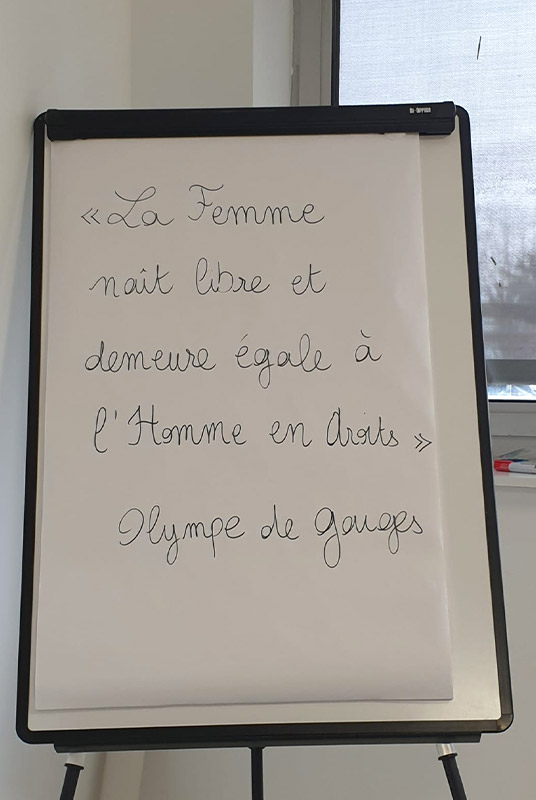 « La Femme
naît libre et
demeure égale à
l'Homme en droits »
Olympe de Gouges